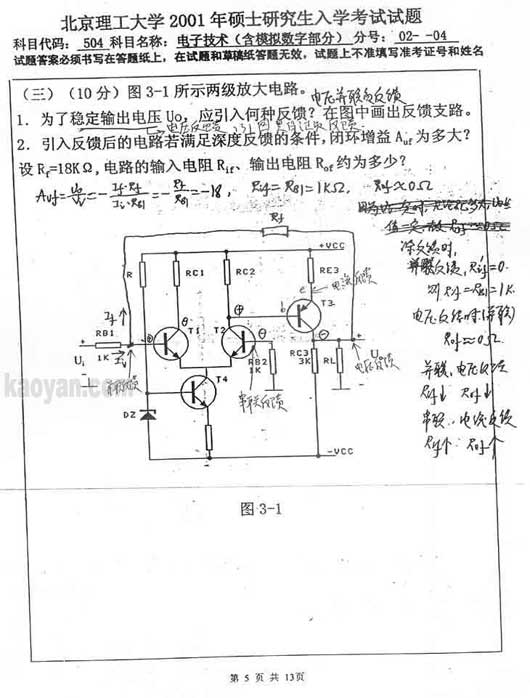 北京理工大学 2001 年硕士研究生入学考试试题
科目代码: 504 科目名称: 电子技术(含模拟数字部分) 分号: 02--04
试题答案必须书写在答题纸上,在试题和草稿纸答题无效,试题上不准填写准考证号和姓名
(三) (10 分) 图 3-1 所示两级放大电路。 电压并联负反馈
1. 为了稳定输出电压 Uo,应引入何种反馈?在图中画出反馈支路。
2. 引入反馈后的电路若满足深度反馈的条件,闭环增益 Auf 为多大?
设 Rf=18KΩ,电路的输入电阻 Rif、输出电阻 Rof 约为多少?
Auf = Uo/Ui = - If·Rf/Ii·RB1 = - Rf/RB1 = -18, Rif = RB1 = 1KΩ, Rof ≈ 0Ω
Rf
+VCC
R RC1 RC2 RE3
e 电流反馈
深负反馈时,
并联反馈, Rif' = 0.
则 Rif = RB1 = 1K.
电压反馈时(并联)
Rof ≈ 0Ω
If
RB1 T1 T2 T3
b
Ui 1K Ii
RB2
1K
RC3
3K
RL
U
电压反馈
串联反馈
T4
DZ
-VCC
并联、电压反馈
Rif↓ Rof↓
串联、电流反馈
Rif↑ Rof↑
kaoyan.com
图 3-1
第 5 页 共 13页